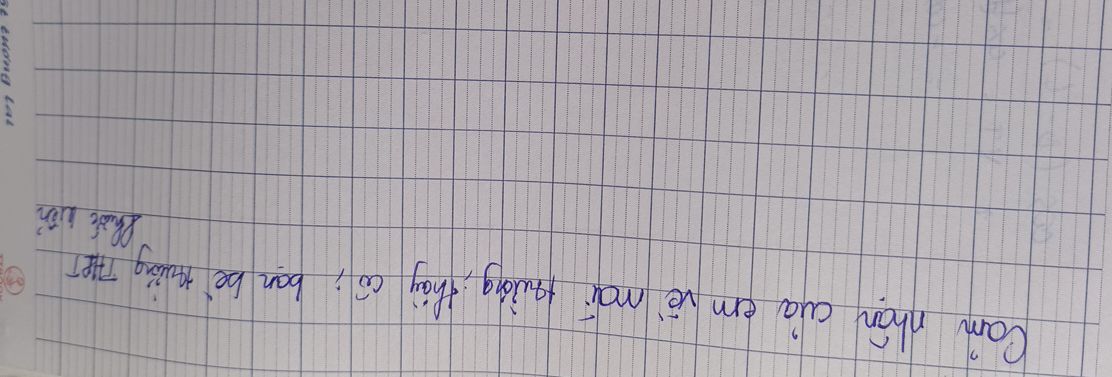 Cảm nhận của em về mái trường, thầy cô, bạn bè trường THPT
Phước Kiển